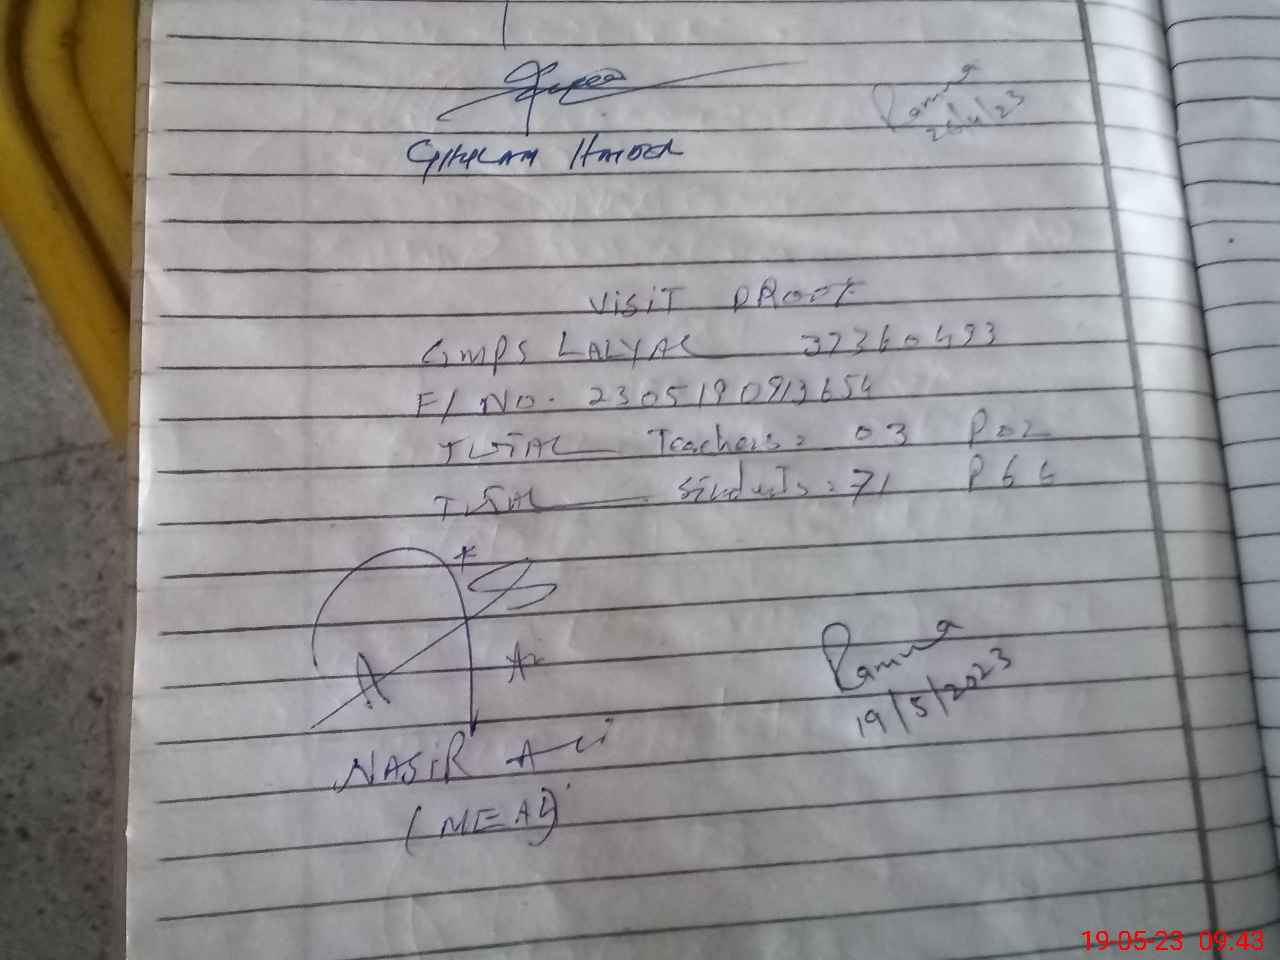 Ramna
26/4/23
GHULAM HAIDER
VISIT PROOF
GMPS LALYAL 37360493
F/ NO. 2305190913654
TOTAL Teachers: 03 P 02
TOTAL Students: 71 P 66
Ramna
19/5/2023
NASIR ALI
(MEA)
19-05-23 09:43